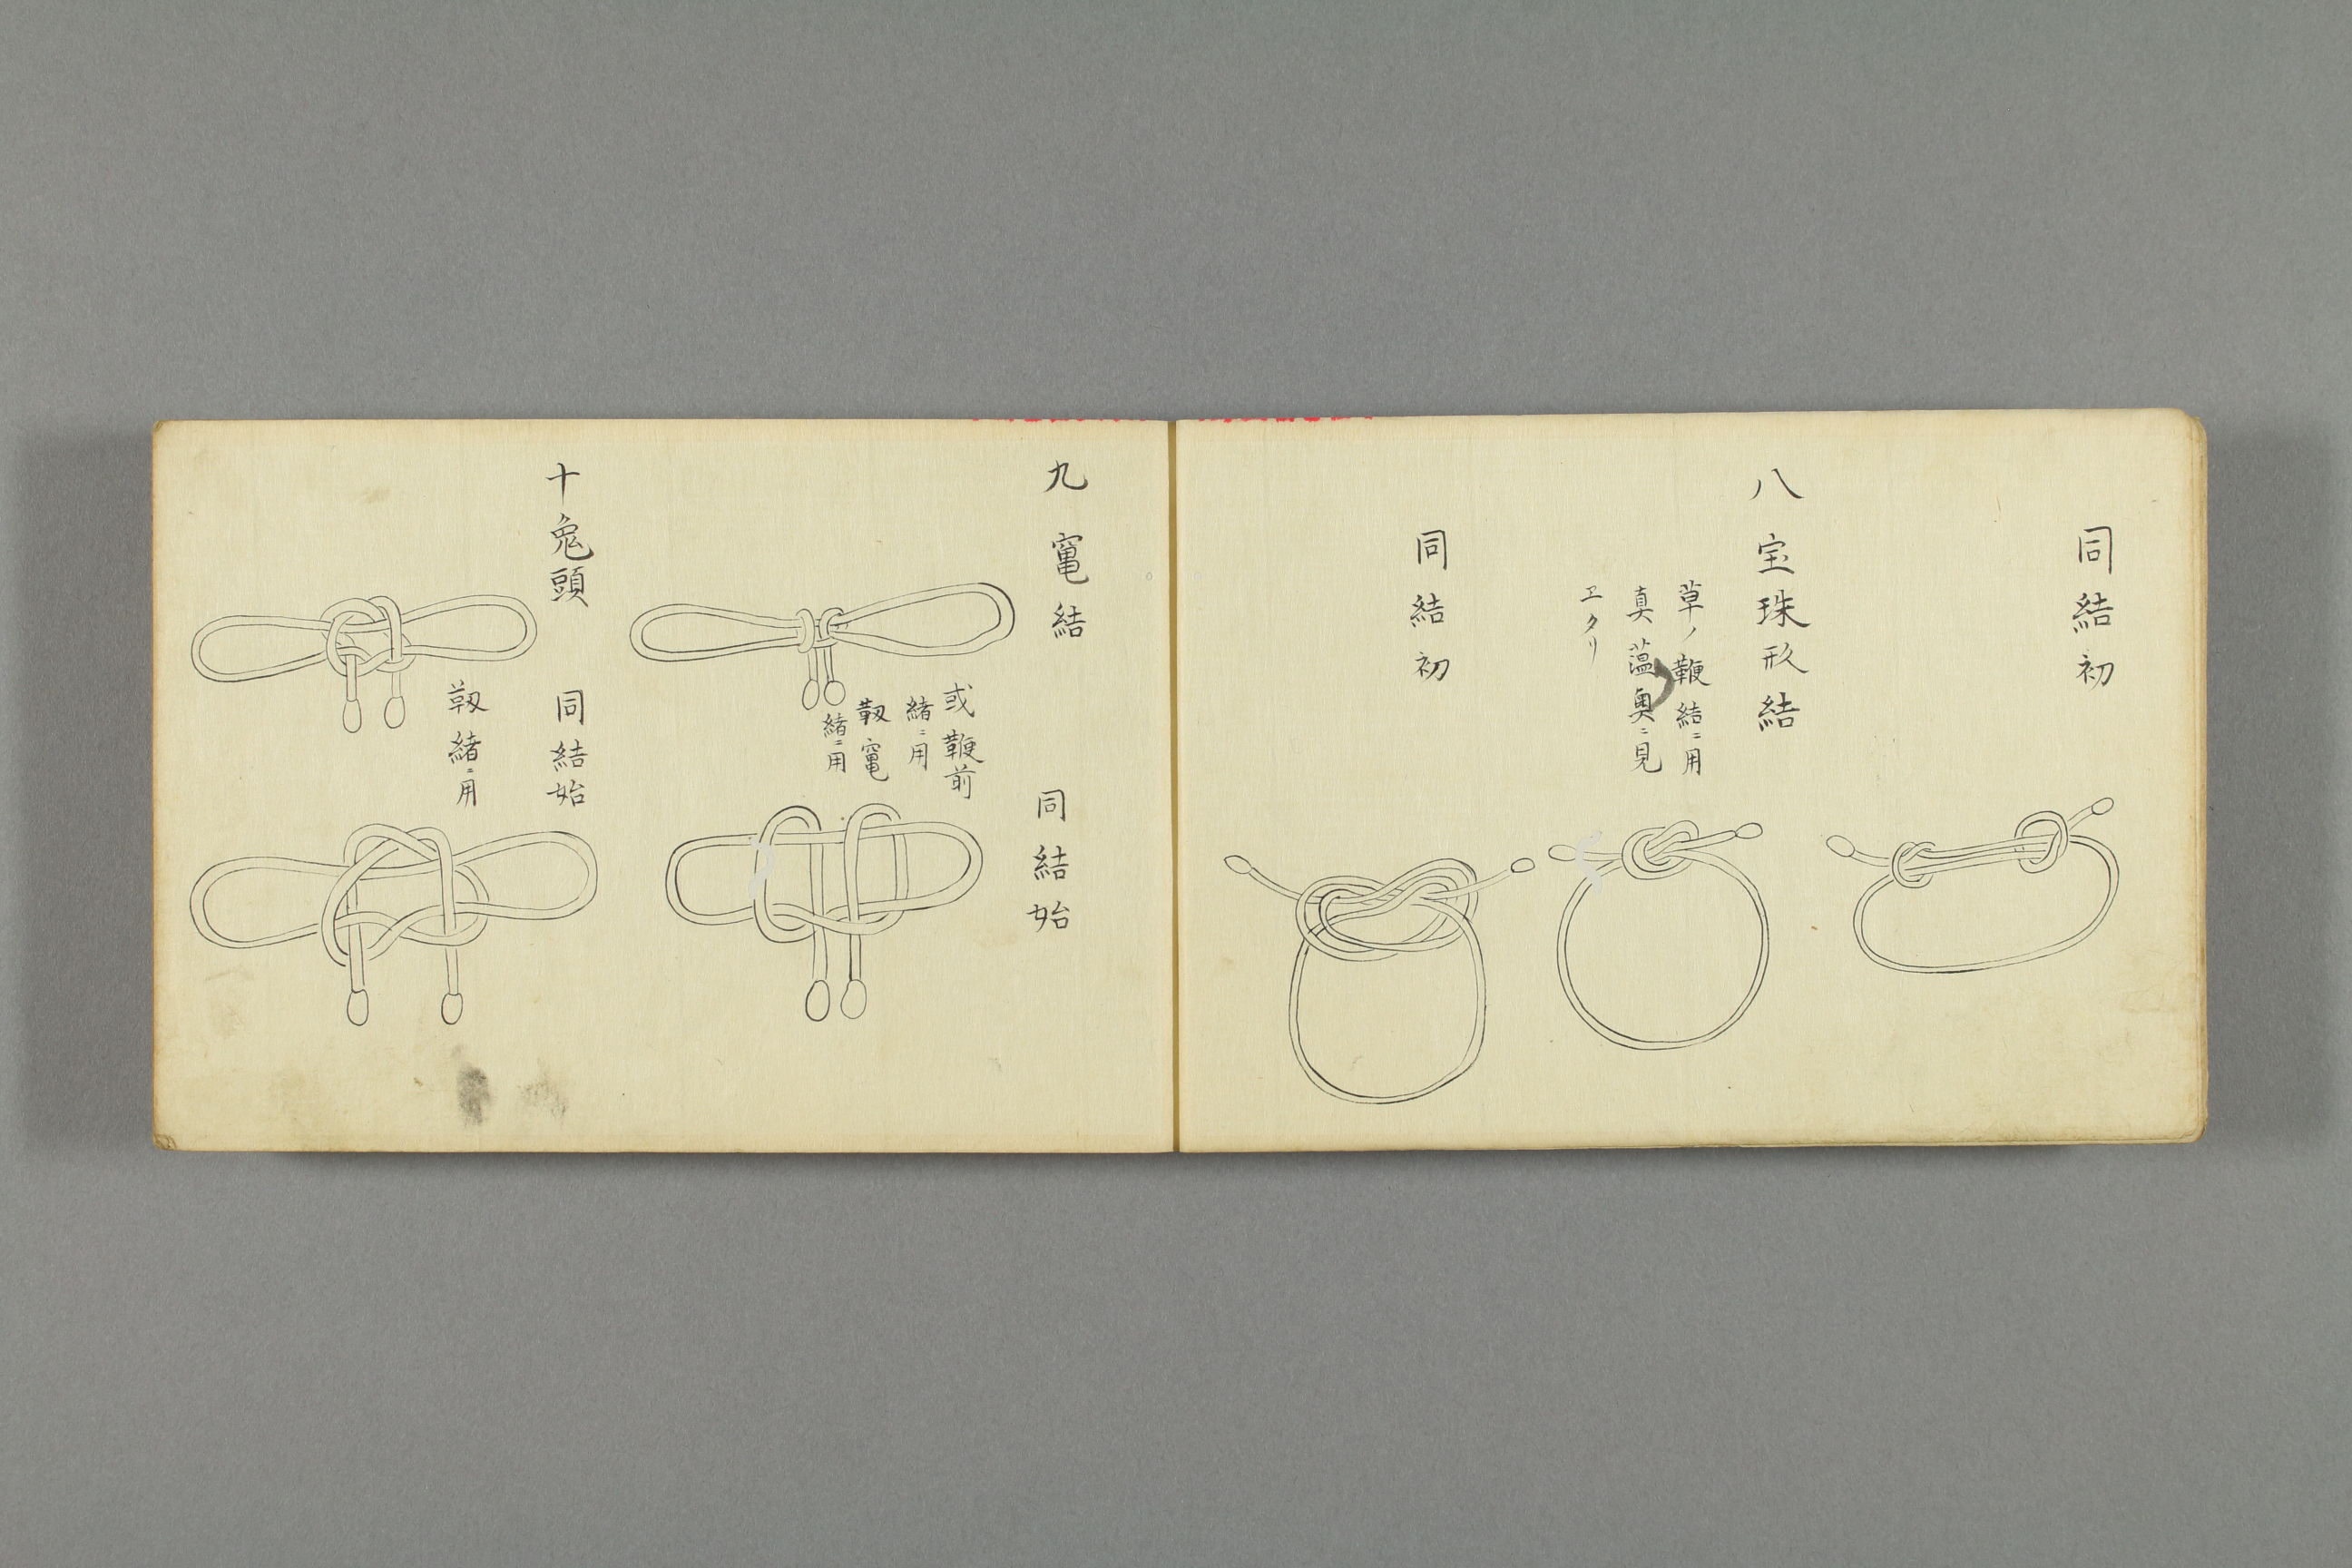 同結初
八 宝珠形結
草ノ鞭結ニ用
真蕰奥ニ見
エタリ
同結初
九 竃結
或鞭前
緒ニ用
靫竃
緒ニ用
同結始
十 兔頭
同結始
靫緒ニ用